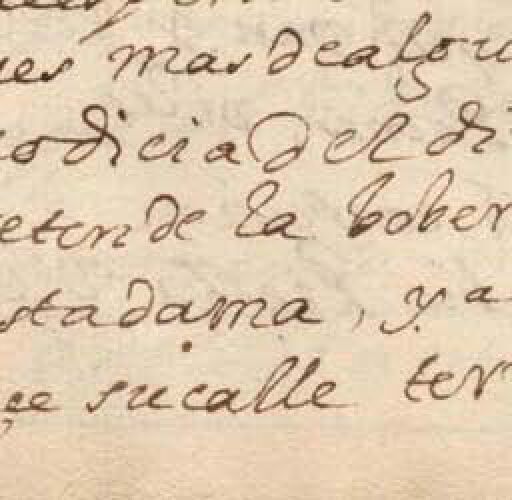 ues mas de algu
codicia del di
etende la bober
sta dama, y a
çe su calle ter